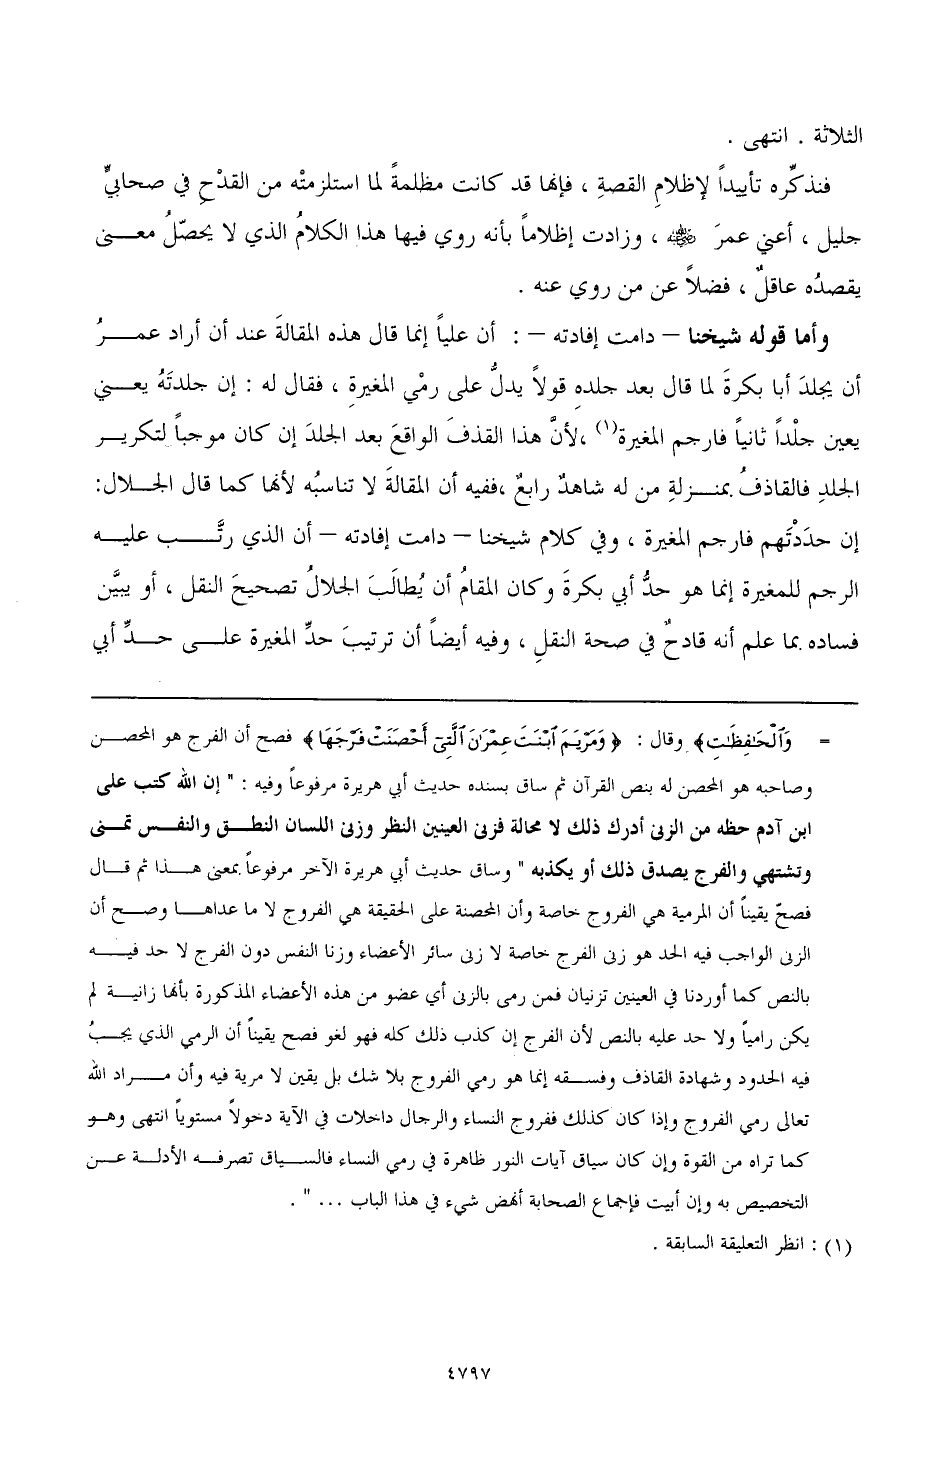 الثلاثة . انتهى .
فنذكِّره تأييداً لإظلامِ القصةِ ، فإنها قد كانت مظلمةً لما استلزمتْه من القدْحِ في صحابيٍّ
جليل ، أعني عمرَ ﷺ ، وزادت إظلاماً بأنه روي فيها هذا الكلامُ الذي لا يحصّلُ معـــنى
يقصدُه عاقلٌ ، فضلاً عن من روي عنه .
وأما قوله شيخنا – دامت إفادته – : أن علياً إنما قال هذه المقالةَ عند أن أراد عمــرُ
أن يجلدَ أبا بكرةَ لما قال بعد جلدِه قولاً يدلُّ على رمْي المغيرةِ ، فقال له : إن جلدتَهُ يعــني
يعين جلْداً ثانياً فارجم المغيرة(١) ،لأنَّ هذا القذفَ الواقعَ بعد الجلدَ إن كان موجباً لتكريـر
الجلدِ فالقاذفُ بمنـزلةِ من له شاهدٌ رابعٌ ،ففيه أن المقالةَ لا تناسبُه لأنها كما قال الجـلال:
إن حدَدْتَهم فارجم المغيرة ، وفي كلام شيخنا – دامت إفادته – أن الذي رتَّــب عليــه
الرجم للمغيرة إنما هو حدُّ أبي بكرةَ وكان المقامُ أن يُطالَبَ الجلالُ تصحيحَ النقل ، أو يبيَّن
فساده بما علم أنه قادحٌ في صحة النقلِ ، وفيه أيضاً أن ترتيبَ حدِّ المغيرة علــى حــدِّ أبي
= وَٱلْحَٰفِظَٰتِ﴾ وقال : ﴿ وَمَرْيَمَ ٱبْنَتَ عِمْرَٰنَ ٱلَّتِىٓ أَحْصَنَتْ فَرْجَهَا﴾ فصح أن الفرج هو المحصــن
وصاحبه هو المحصن له بنص القرآن ثم ساق بسنده حديث أبي هريرة مرفوعاً وفيه : " إن الله كتب على
ابن آدم حظه من الزنى أدرك ذلك لا محالة فزنى العينين النظر وزنى اللسان النطـق والنفـس تمـنى
وتشتهي والفرج يصدق ذلك أو يكذبه " وساق حديث أبي هريرة الآخر مرفوعاً بمعنى هــذا ثم قــال
فصحّ يقيناً أن المرمية هي الفروج خاصة وأن المحصنة على الحقيقة هي الفروج لا ما عداهــا وصــح أن
الزنى الواجب فيه الحد هو زنى الفرج خاصة لا زنى سائر الأعضاء وزنا النفس دون الفرج لا حد فيــه
بالنص كما أوردنا في العينين تزنيان فمن رمى بالزنى أي عضو من هذه الأعضاء المذكورة بأنها زانيــة لم
يكن رامياً ولا حد عليه بالنص لأن الفرج إن كذب ذلك كله فهو لغو فصح يقيناً أن الرمي الذي يجــبُ
فيه الحدود وشهادة القاذف وفسـقه إنما هو رمي الفروج بلا شك بل يقين لا مرية فيه وأن مــراد الله
تعالى رمي الفروج وإذا كان كذلك ففروج النساء والرجال داخلات في الآية دخولاً مستوياً انتهى وهــو
كما تراه من القوة وإن كان سياق آيات النور ظاهرة في رمي النساء فالسـياق تصرفـه الأدلـة عــن
التخصيص به وإن أبيت فإجماع الصحابة أنهض شيء في هذا الباب ... " .
(١) : انظر التعليقة السابقة .
٤٧٩٧